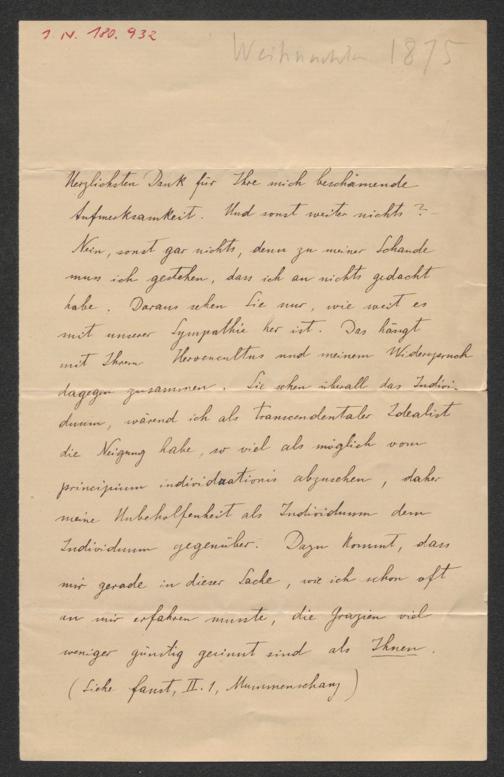 I. N. 180.932
Weihnachten 1875
Herzlichsten Dank für Ihre mich beschämende
Aufmerksamkeit. Und sonst weiter nichts?
Nein, sonst gar nichts, denn zu meiner Schande
muss ich gestehen, dass ich an nichts gedacht
habe. Daraus sehen Sie nur, wie weit es
mit unserer Sympathie her ist. Das hängt
mit Ihrem Heroencultus und meinem Widerspruch
dagegen zusammen. Sie sehen überall das Indivi-
duum, wärend ich als transcendentaler Idealist
die Neigung habe, so viel als möglich vom
principium individuationis abzusehen, daher
meine Unbeholfenheit als Individuum dem
Individuum gegenüber. Dazu kommt, dass
mir gerade in dieser Sache, wie ich schon oft
an mir erfahren musste, die Grazien viel
weniger günstig gesinnt sind als Ihnen.
(Siehe Faust, II. 1, Mummenschanz)